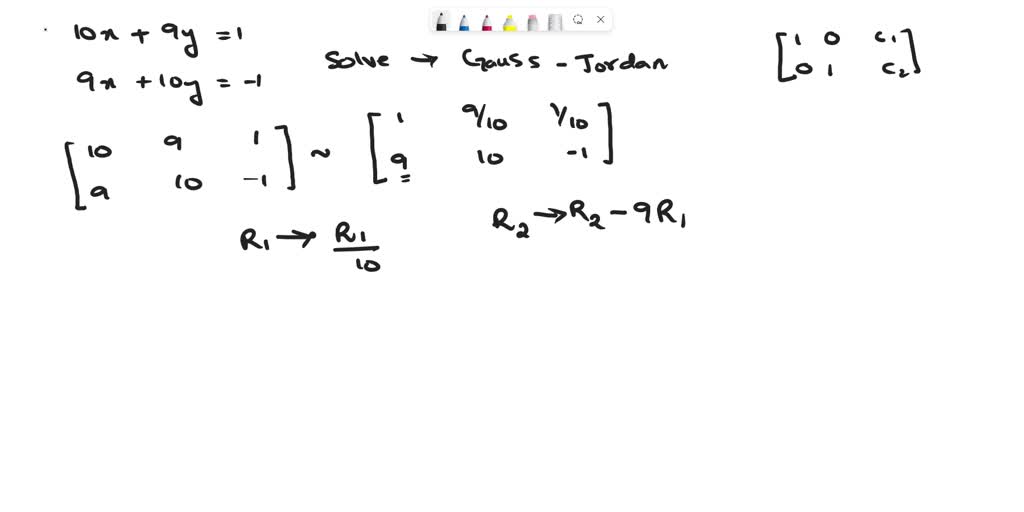 10x + 9y = 1
9x + 10y = -1
Solve → Gauss - Jordan
[1 0 c₁
0 1 c₂]
[10 9 1
9 10 -1]
~
[1 9/10 1/10
9 10 -1]
R₁ → R₁/10
R₂ → R₂ - 9R₁